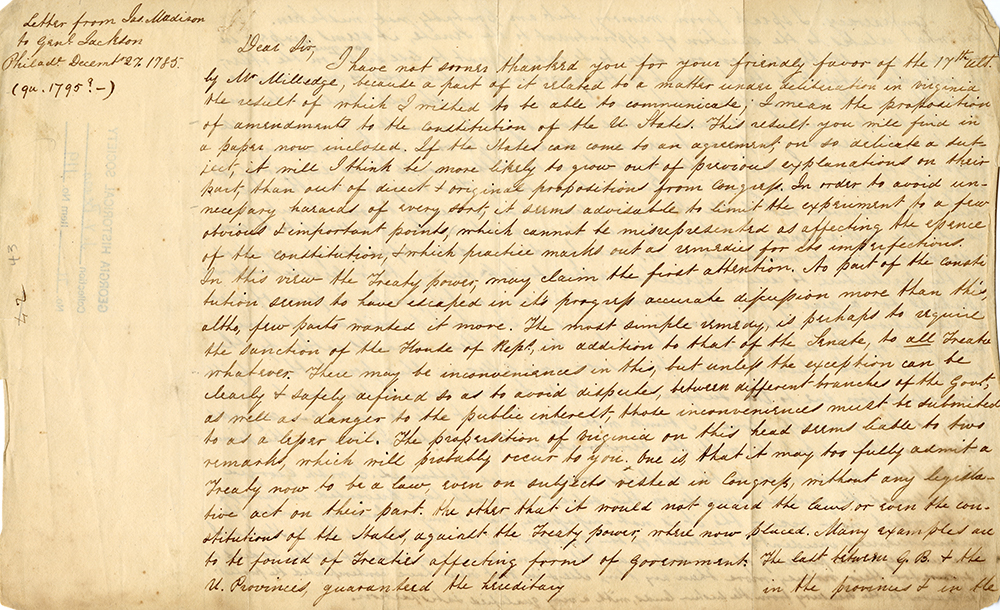 Letter from Jas. Madison
to Genl. Jackson
Philada. Decemr. 27. 1785.
(qu. 1795? —)
No.
Item No.
Collection
GEORGIA HISTORICAL SOCIETY
42
43
Dear Sir,
I have not sooner thanked you for your friendly favor of the 17th ult
by Mr Milledge, because a part of it related to a matter under deliberation in virginia
the result of which I wished to be able to communicate; I mean the proposition
of amendments to the constitution of the U States. This result you will find in
a paper now inclosed. If the States can come to an agreement on so delicate a sub-
ject, it will I think be more likely to grow out of previous explanations on their
part, than out of direct & original propositions from Congress. In order to avoid un-
necessary hazards of every sort, it seems advisable to limit the experiment to a few
obvious & important points, which cannot be misrepresented as affecting the essence
of the constitution, & which practice marks out as remedies for its imperfections.
In this view the Treaty power, may claim the first attention. No part of the consti
tution seems to have escaped in its progress accurate discussion more than this,
altho, few parts wanted it more. The most simple remedy, is perhaps to require
the sanction of the House of Reps., in addition to that of the Senate, to all Treaties
whatever. There may be inconveniences in this, but unless the exception can be
clearly & safely defined so as to avoid disputes, between different branches of the Govt,
as well as danger to the public interest, those inconveniences must be submitted
to as a lesser evil. The proposition of virginia on this head seems liable to two
remarks, which will probably occur to you. One is, that it may too fully admit a
Treaty now to be a law, even on subjects vested in Congress, without any legisla-
tive act on their part. the other that it would not guard the laws or even the con-
stitutions of the States, against the Treaty power, where now placed. Many examples are
to be found of Treaties affecting forms of Government. The last between G. B. & the
U. Provinces, guaranteed the hereditary in the provinces & in the